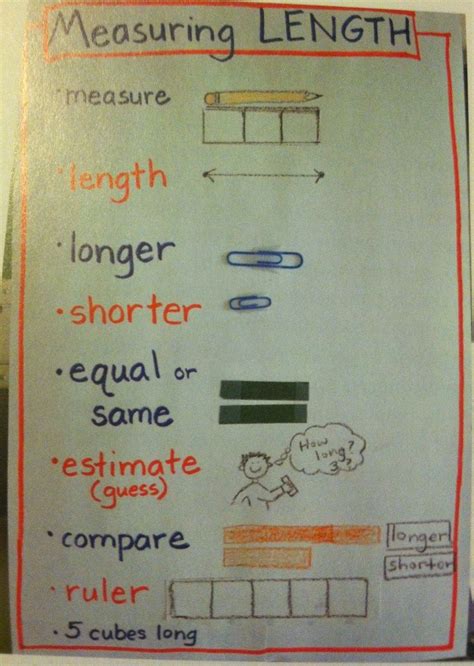 Measuring LENGTH
·measure
·length
·longer
·shorter
·equal or
same
·estimate
(guess)
How
long?
3?
·compare
longer
shorter
·ruler
·5 cubes long